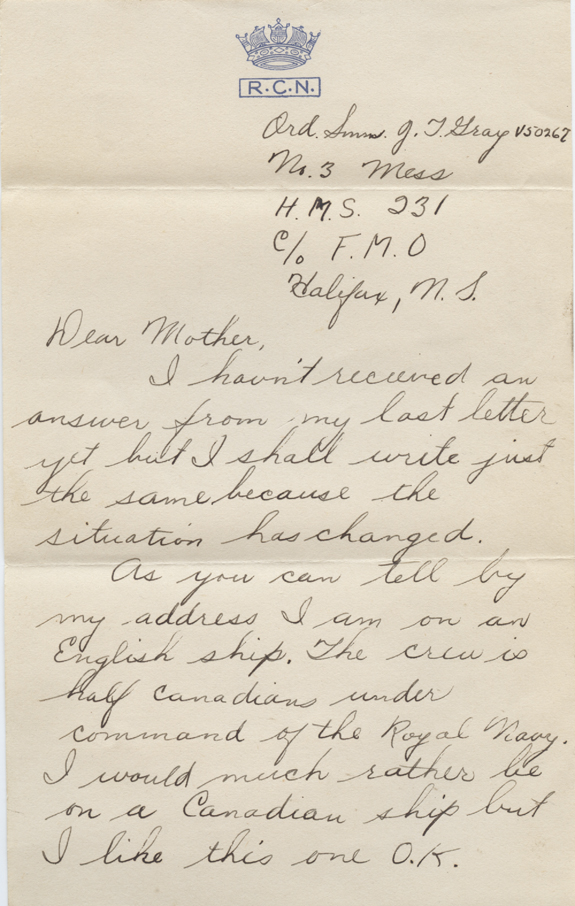 R.C.N.
Ord. Smn. J. T. Gray V50267
No. 3 Mess
H.M.S. 231
c/o F.M.O
Halifax, N.S.
Dear Mother,
I havn't recieved an
answer from my last letter
yet but I shall write just
the same because the
situation has changed.
As you can tell by
my address I am on an
English ship. The crew is
half Canadians under
command of the Royal Navy.
I would much rather be
on a Canadian ship but
I like this one O.K.